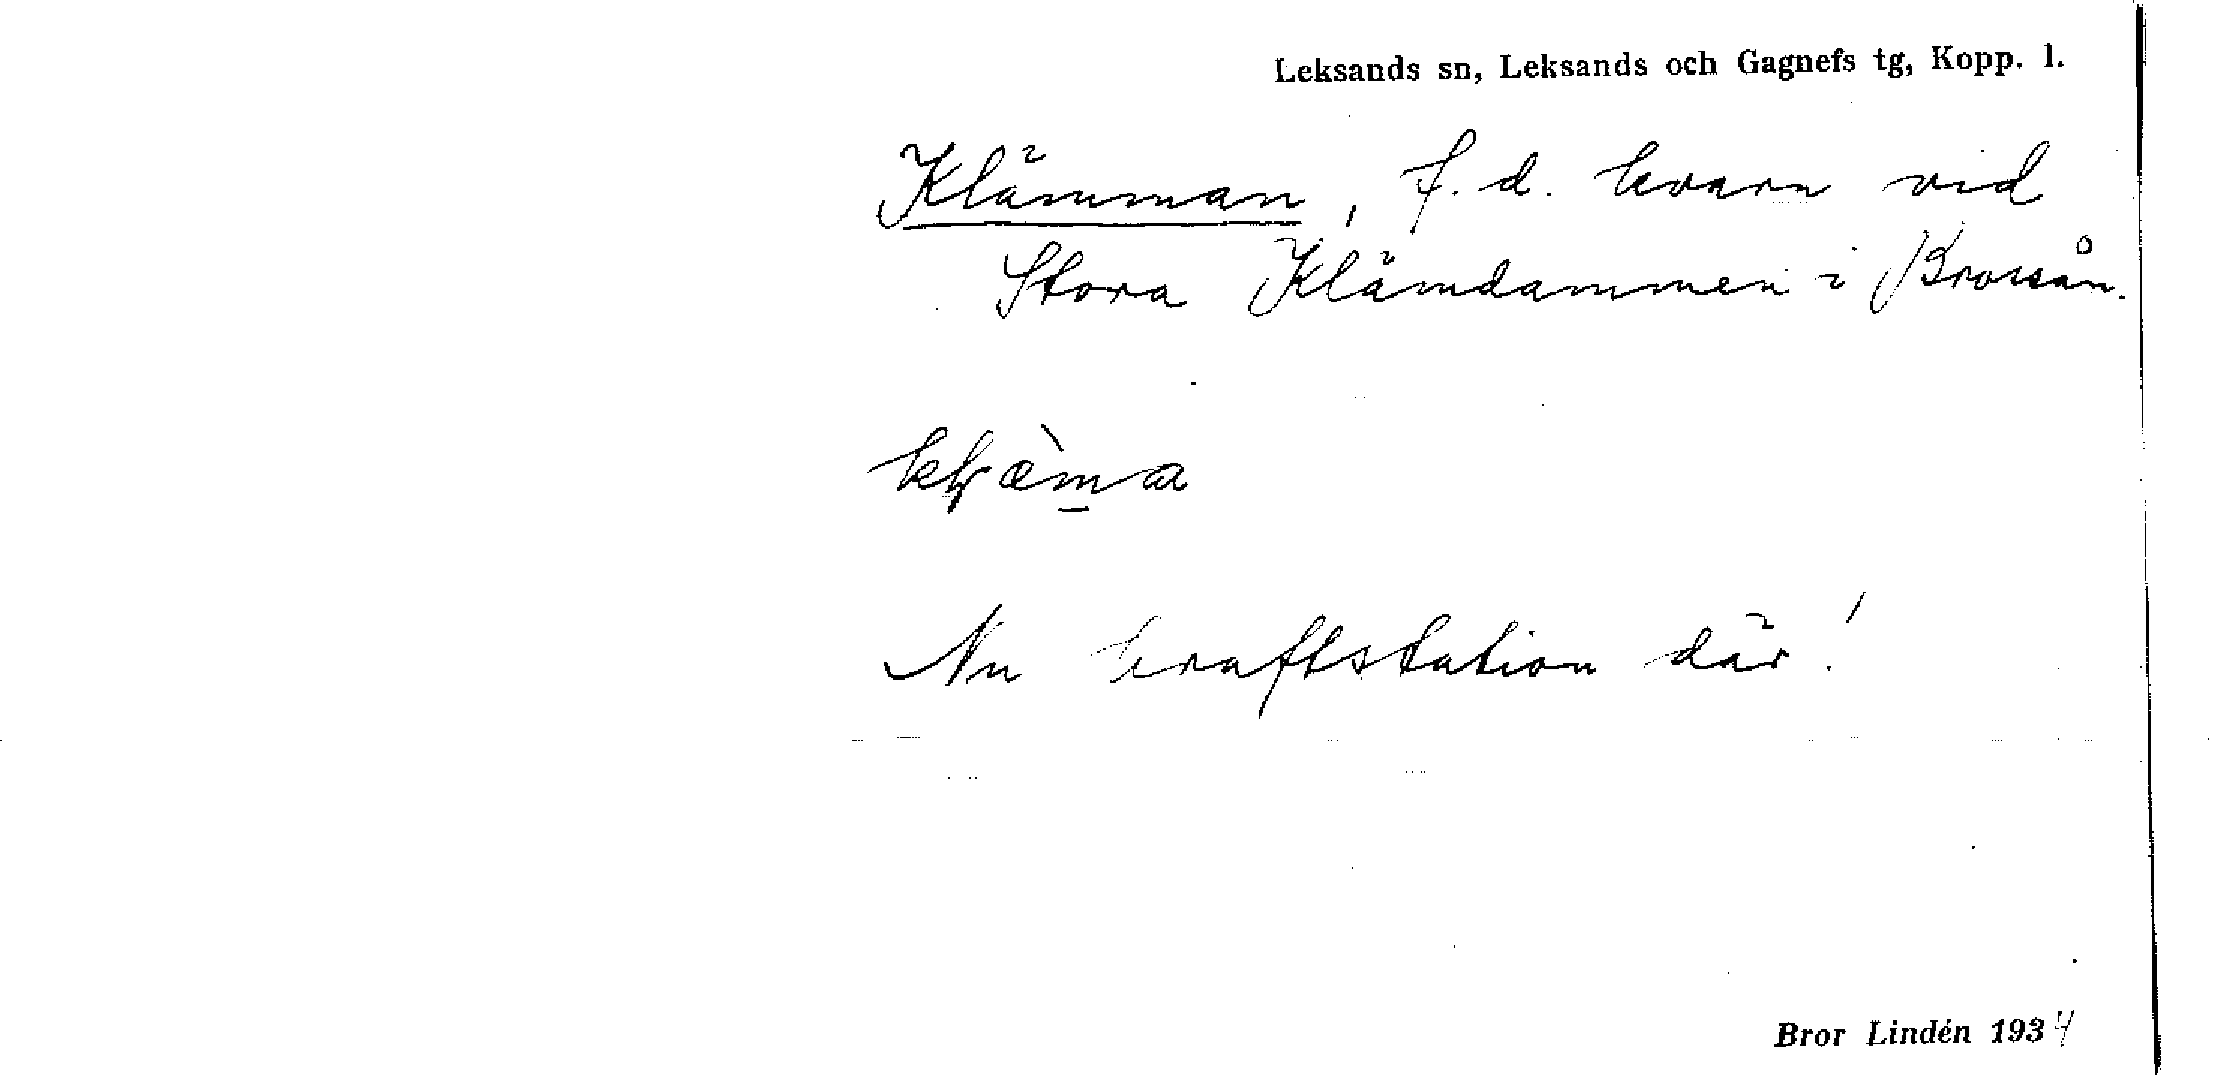 Leksands sn, Leksands och Gagnefs tg, Kopp. l.
Klämman, f. d. kvarn vid
Stora Klämdammen i Brossån.
Nu kraftstation där!
Bror Lindén 1934